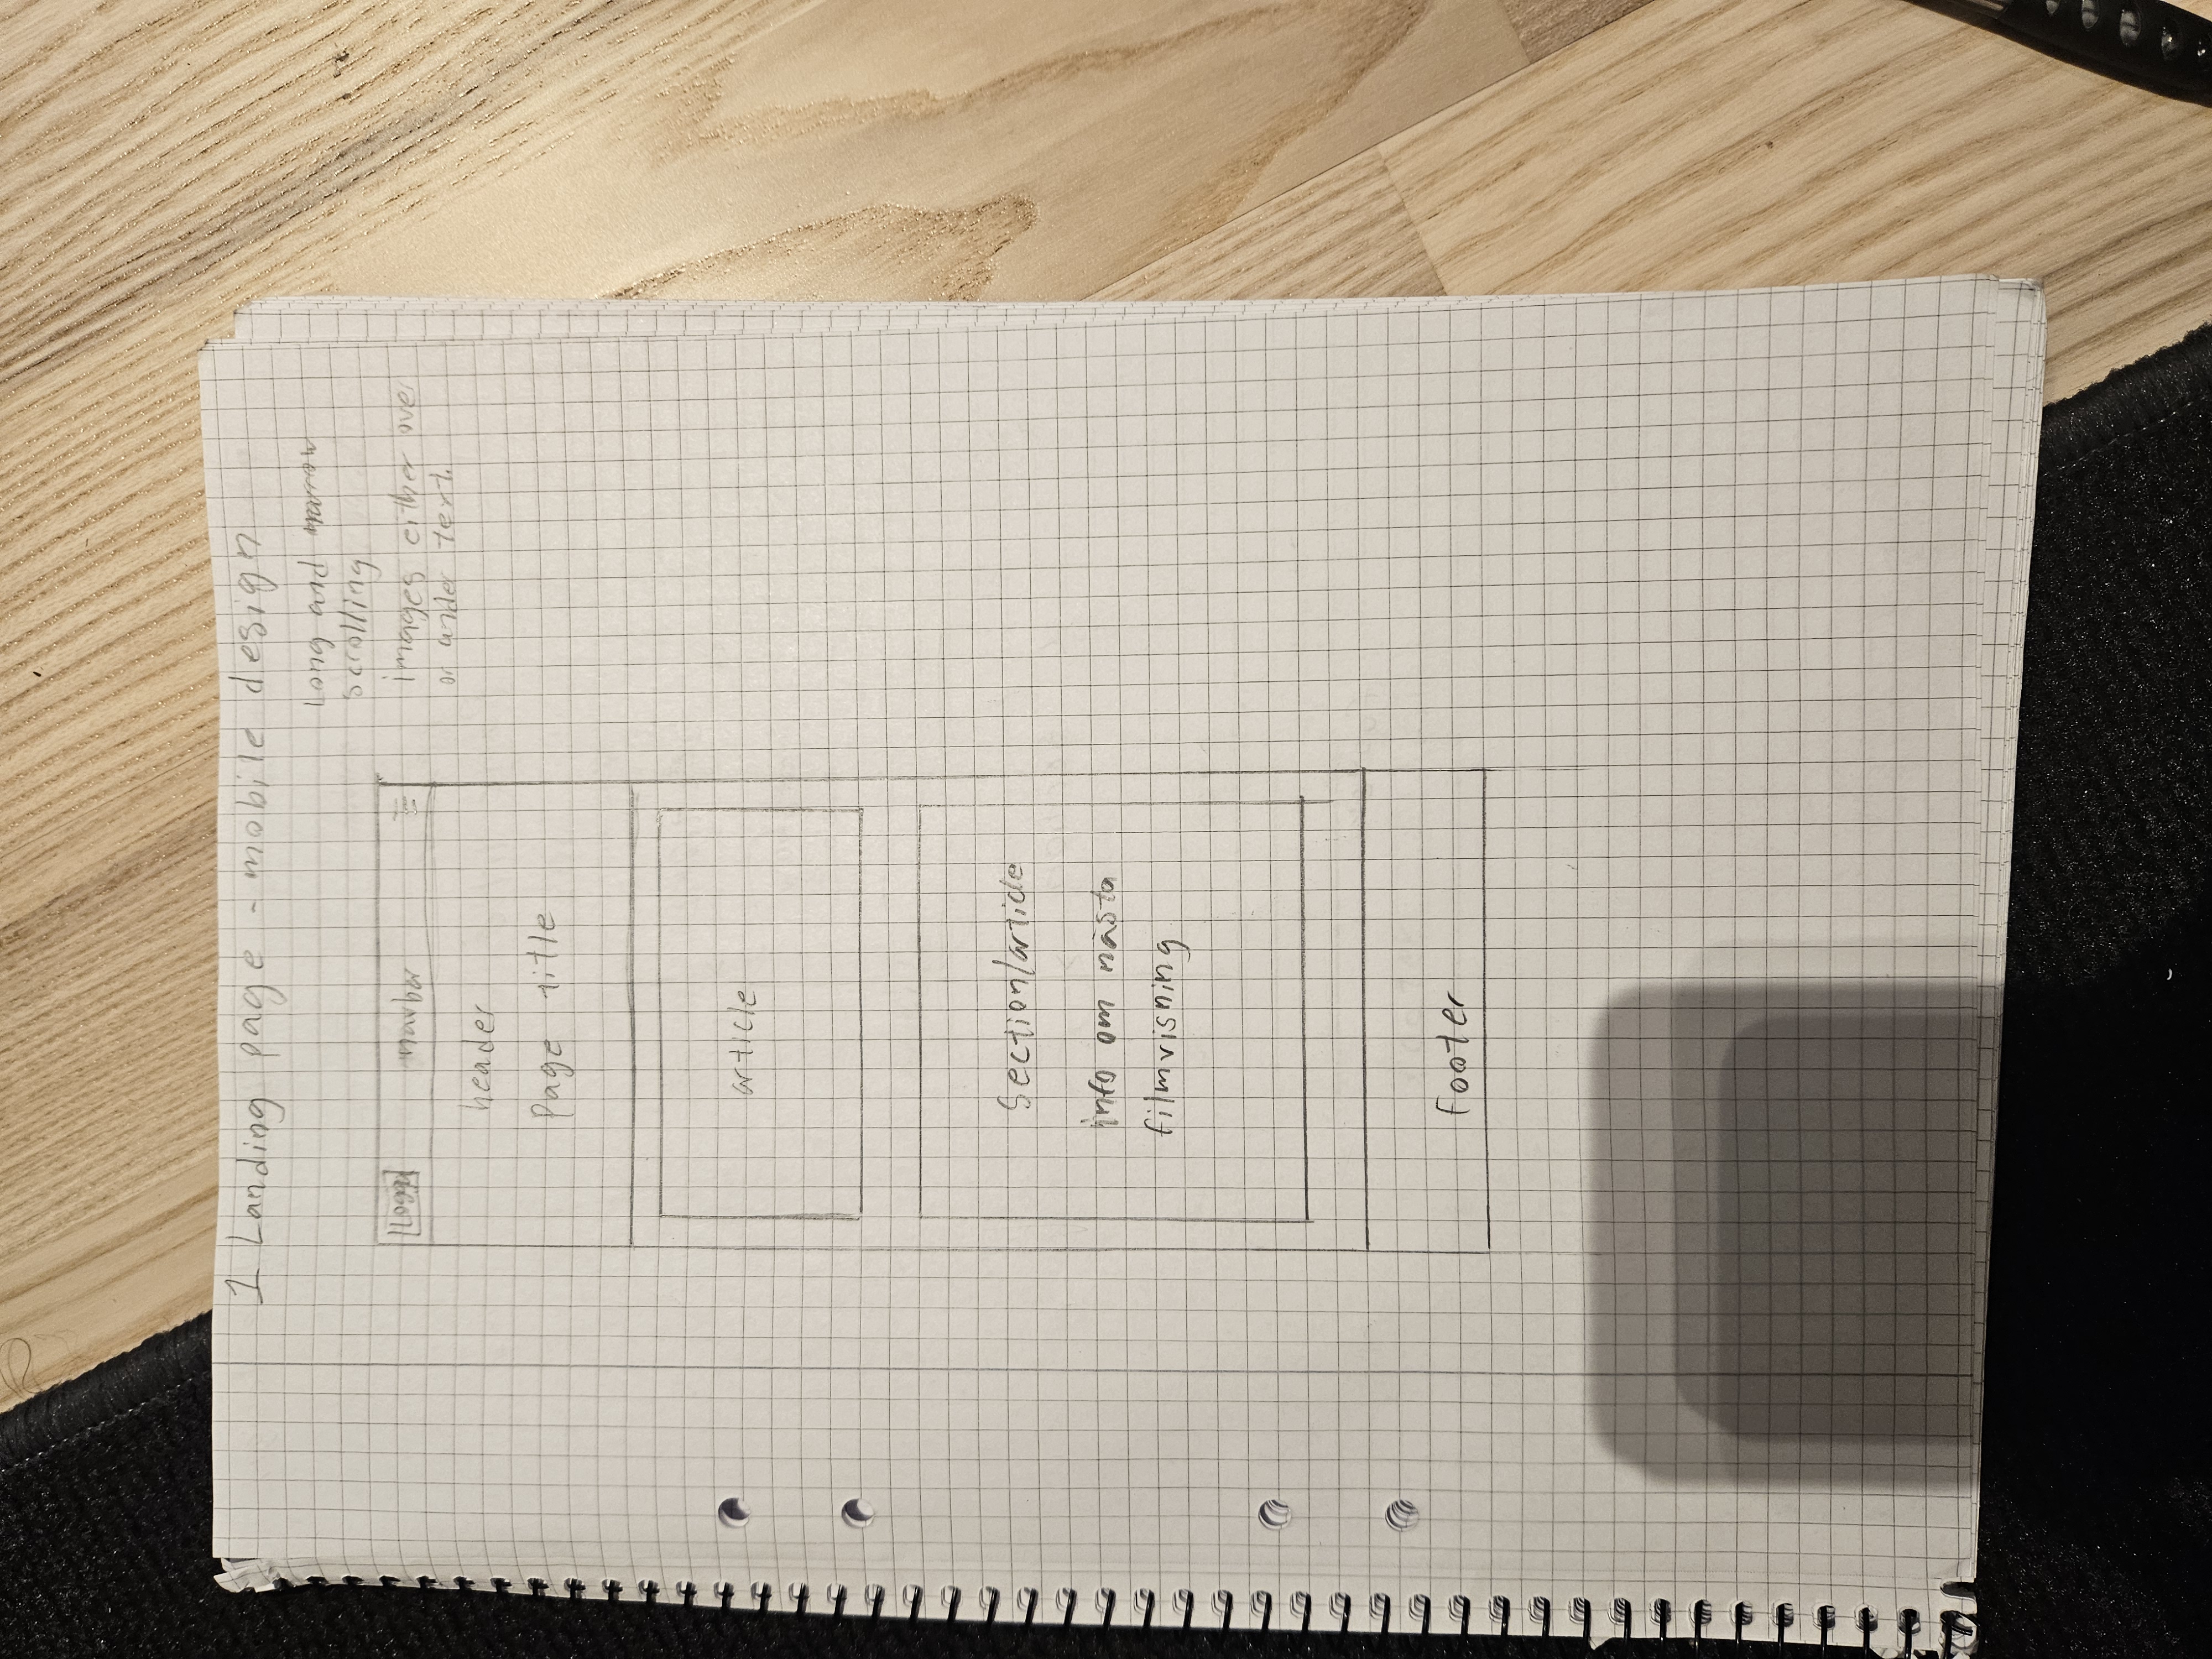 1 Landing page - mobile design
Long and narrow
scrolling
images either over
or under text.
navbar
header
Page title
article
Section/article
info om nästa
filmvisning
Footer